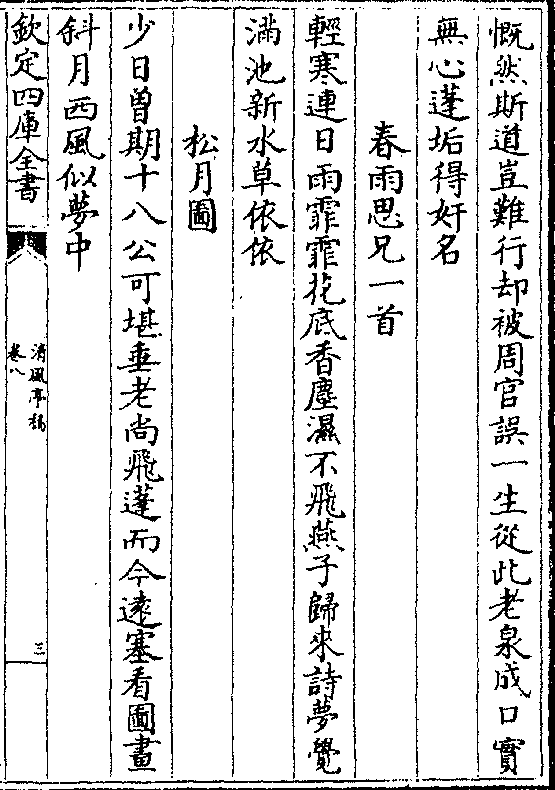 慨然斯道豈難行却被周官誤一生從此老泉成口實
無心蓬垢得奸名
春雨思兄一首
輕寒連日雨霏霏花底香塵濕不飛燕子歸來詩夢覺
滿池新水草依依
松月圖
少日曽期十八公可堪垂老尚飛蓬而今遠塞看圖畫
斜月西風似夢中
欽定四庫全書
清風亭稿
卷八
三